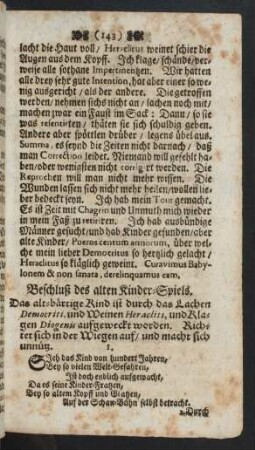 (143)
lacht die Haut voll / Heraclitus weinet schier die
Augen aus dem Kopff. Ich klage / schände / ver-
weise alle sothane Impertinentzen. Wir hatten
alle drey sehr gute Intention, hat aber einer so we-
nig ausgericht / als der andere. Die getroffen
werden / nehmen sichs nicht an / lachen noch mit /
machen zwar ein Faust im Sack: Dann / so sie
was resentirten / thäten sie sich schuldig geben.
Andere aber spöttlen drüber / legens übel aus.
Summa, es seynd die Zeiten nicht darnach / daß
man Correction leidet. Niemand will gefehlt ha-
ben / oder wenigsten nicht corrigirt werden. Die
Reprochen will man nicht mehr wissen. Die
Wunden lassen sich nicht mehr heilen / wollen lie-
ber bedeckt seyn. Ich hab mein Tour gemacht.
Es ist Zeit mit Chagrin und Unmuth mich wieder
in mein Faß zu retiriren. Ich hab ausbündige
Männer gesucht / und hab Kinder gefunden / aber
alte Kinder / Pueros centum annorum, über wel-
che mein lieber Democritus so hertzlich gelacht /
Heraclitus so kläglich geweint. Curavimus Baby-
lonem & non sanata, derelinquamus eam.
Beschluß des alten Kinder-Spiels.
Das alt-bärtige Kind ist durch das Lachen
Democriti, und Weinen Heracliti, und Kla-
gen Diogenis aufgeweckt worden. Rich-
tet sich in der Wiegen auf / und macht sich
unnütz.
1.
Ich das Kind von hundert Jahren /
Bey so vielen Welt-Gefahren /
Ist doch endlich aufgewacht /
Da es seine Kinder-Fratzen /
Bey so altem Kopff und Glatzen /
Auf der Schau-Bühn selbst betracht.
2. Durch